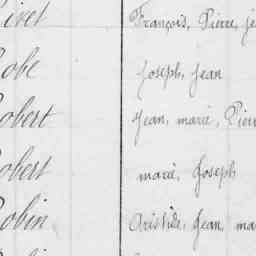 François, Pierre,
Joseph, Jean
Robert Jean, marie,
Robert marie, Joseph
Robin Aristide, Jean,